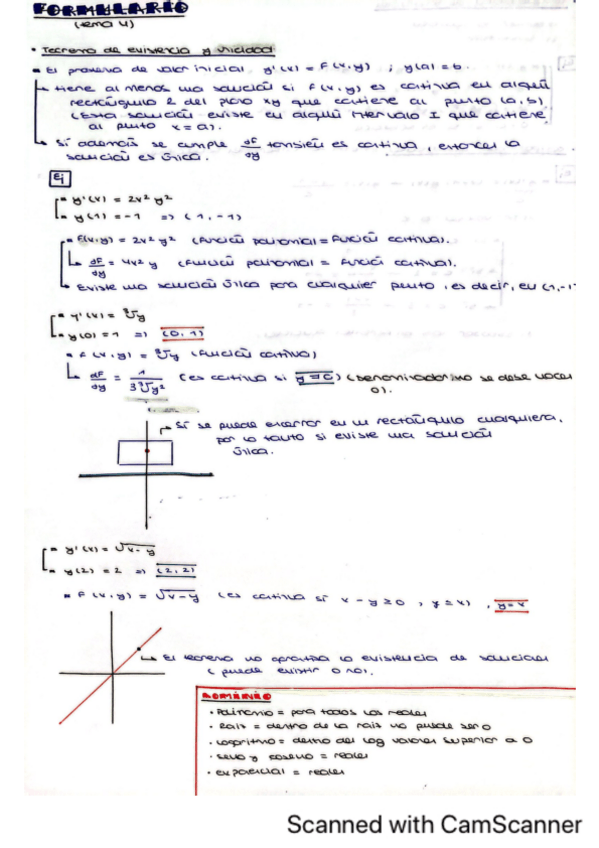 FORMULARIO
(tema 4)
• Teorema de existencia y unicidad
• El problema de valor inicial y'(x) = F(x,y) ; y(a) = b
tiene al menos una solución si F(x,y) es continua en algún
rectángulo R del plano xy que contiene al punto (a,b)
(Esta solución existe en algún intervalo I que contiene
al punto x = a).
Si además se cumple dF/dy también es continua, entonces la
solución es única.
Ej
y'(x) = 2x² y²
y(1) = -1 => (1,-1)
F(x,y) = 2x² y² (Función polinomial = Función continua).
dF/dy = 4x² y (Función polinomial = Función continua).
Existe una solución única para cualquier punto, es decir, en (1,-1
y'(x) = ∛y
y(0) = 1 => (0,1)
F(x,y) = ∛y (Función continua)
dF/dy = 1/3∛y² (es continua si y ≠ 0) (Denominador no se debe hacer
0).
Sí se puede encerrar en un rectángulo cualquiera,
por lo tanto si existe una solución
única.
y'(x) = √x-y
y(2) = 2 => (2,2)
F(x,y) = √x-y (es continua si x-y≥0 , y≤x) , y=x
El teorema no garantiza la existencia de soluciones
(puede existir o no).
DOMINIO
• Polinomio = para todos los reales
• Raíz = dentro de la raíz no puede ser 0
• Logaritmo = dentro del log valores superior a 0
• seno y coseno = reales
• exponencial = reales
Scanned with CamScanner